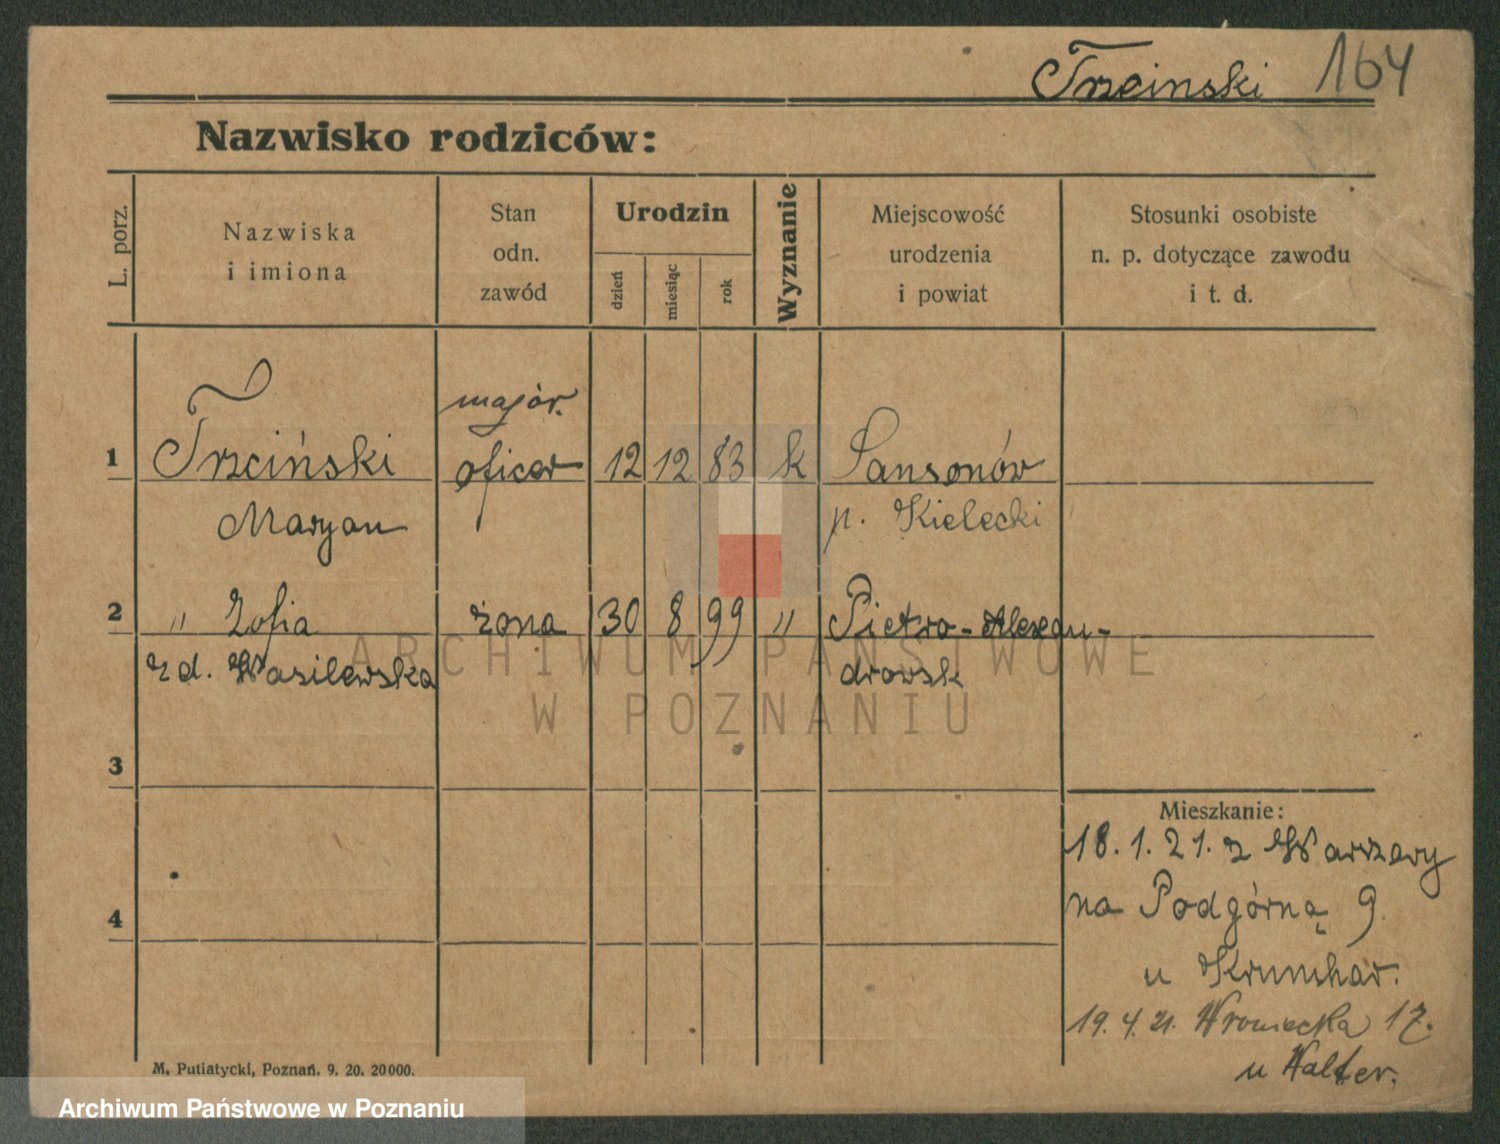 Trzcinski 164
Nazwisko rodziców:
L. porz.
Nazwiska
i imiona
Stan
odn.
zawód
Urodzin
dzień
miesiąc
rok
Wyznanie
Miejscowość
urodzenia
i powiat
Stosunki osobiste
n. p. dotyczące zawodu
i t. d.
major.
1 Trzciński oficer 12 12 83 k Sansonów
Maryan p. Kielecki
2 " Zofia żona 30 8 99 " Pietro-Alexan-
z d. Wasilewska drowsk
ARCHIWUM PAŃSTWOWE
W POZNANIU
3
Mieszkanie:
18.1.21. z Warszawy
4 na Podgórną 9.
u Krumhar.
19.4.21. Wroniecka 17.
u Walter.
M. Putiatycki, Poznań. 9. 20. 20000.
Archiwum Państwowe w Poznaniu